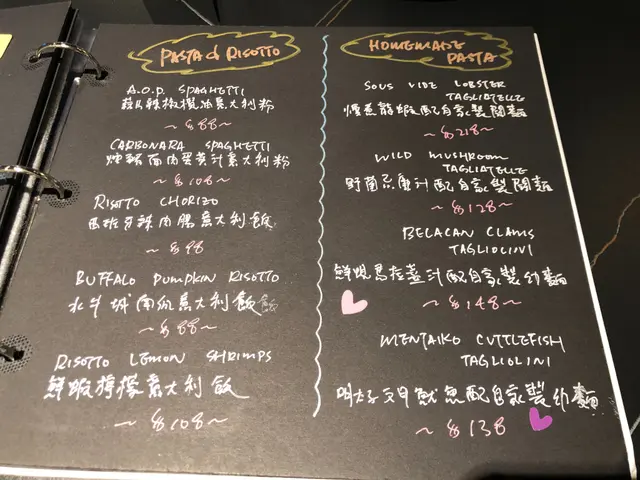 PASTA & RISOTTO
A.O.P. SPAGHETTI
蒜片辣椒欖油意大利粉
~ $88 ~
CARBONARA SPAGHETTI
煙豬面肉蛋黃汁意大利粉
~ $108 ~
RISOTTO CHORIZO
西班牙辣肉腸意大利飯
~ $98
BUFFALO PUMPKIN RISOTTO
水牛城南瓜意大利飯
~ $88 ~
RISOTTO LEMON SHRIMPS
鮮蝦檸檬意大利飯
~ $108 ~
HOMEMADE
PASTA
SOUS VIDE LOBSTER
TAGLIATELLE
慢煮龍蝦配自家製闊麵
~ $218 ~
WILD MUSHROOM
TAGLIATELLE
野菌忌廉汁配自家製闊麵
~ $128 ~
BELACAN CLAMS
TAGLIOLINI
鮮蜆馬拉盞汁配自家製幼麵
~ $148 ~
MENTAIKO CUTTLEFISH
TAGLIOLINI
明太子墨魚配自家製幼麵
~ $138